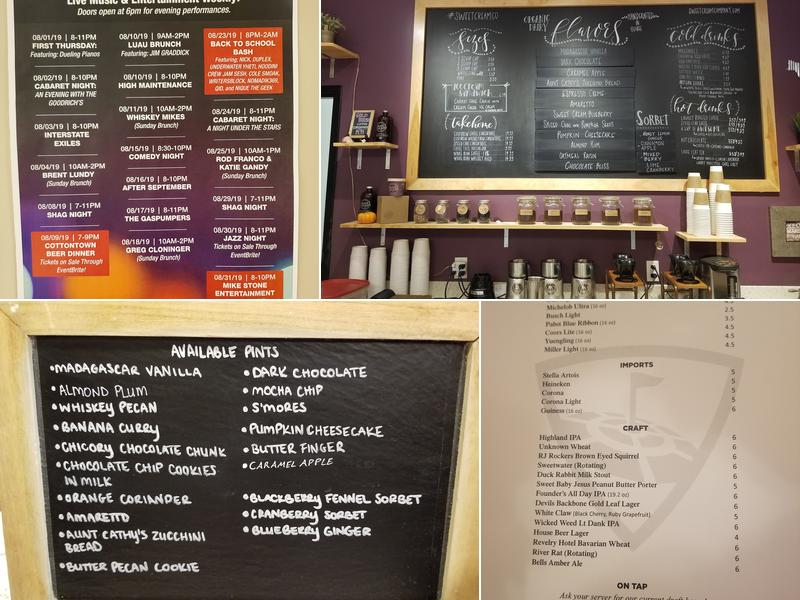 Live Music & Entertainment Weekly!
Doors open at 6pm for evening performances.
08/01/19 | 8-11PM
FIRST THURSDAY:
Featuring: Dueling Pianos
08/02/19 | 8-10PM
CABARET NIGHT:
AN EVENING WITH THE
GOODRICH'S
08/03/19 | 8-11PM
INTERSTATE
EXILES
08/04/19 | 10AM-2PM
BRENT LUNDY
(Sunday Brunch)
08/08/19 | 7-11PM
SHAG NIGHT
08/09/19 | 7-9PM
COTTONTOWN
BEER DINNER
Tickets on Sale Through
EventBrite!
08/10/19 | 9AM-2PM
LUAU BRUNCH
Featuring: JIM GRADDICK
08/10/19 | 8-10PM
HIGH MAINTENANCE
08/11/19 | 10AM-2PM
WHISKEY MIKES
(Sunday Brunch)
08/15/19 | 8:30-10PM
COMEDY NIGHT
08/16/19 | 8-11PM
AFTER SEPTEMBER
08/17/19 | 8-11PM
THE GASPUMPERS
08/18/19 | 10AM-2PM
GREG CLONINGER
(Sunday Brunch)
08/23/19 | 8PM-2AM
BACK TO SCHOOL
BASH
Featuring: NICK, DUPLEX,
UNDERWATER YHETI, HOODINI
CREW JAM SESH, COLE SMOAK,
WRITERSBLOCK, NOMADIK369,
QID, and NIQUE THE GEEK
08/24/19 | 8-11PM
CABARET NIGHT:
A NIGHT UNDER THE STARS
08/25/19 | 10AM-1PM
ROD FRANCO &
KATIE GANDY
(Sunday Brunch)
08/29/19 | 7-11PM
SHAG NIGHT
08/30/19 | 8-11PM
JAZZ NIGHT
Tickets on Sale Through
EventBrite!
08/31/19 | 8-10PM
MIKE STONE
ENTERTAINMENT
#SWEETCREAMCO
ORGANIC
DAIRY
Flavors
HANDCRAFTED
SWEETCREAMCOMPANY.COM
Sizes
cold drinks
MADAGASCAR VANILLA
DARK CHOCOLATE
CARAMEL APPLE
AUNT CATHY'S ZUCCHINI BREAD
ESPRESSO CREME
AMARETTO
SWEET CREAM BLUEBERRY
PUMPKIN CHEESECAKE
ALMOND PLUM
OATMEAL RAISIN
CHOCOLATE BLISS
ICE CREAM
SANDWICH
take home
SORBET
HONEY LEMON
CINNAMON
APPLE
MIXED
BERRY
LIME
CRANBERRY
hot drinks
AVAILABLE PINTS
•MADAGASCAR VANILLA
•ALMOND PLUM
•WHISKEY PECAN
•BANANA CURRY
•CHICORY CHOCOLATE CHUNK
•CHOCOLATE CHIP COOKIES
IN MILK
•ORANGE CORIANDER
•AMARETTO
•AUNT CATHY'S ZUCCHINI
BREAD
•BUTTER PECAN COOKIE
•DARK CHOCOLATE
•MOCHA CHIP
•S'MORES
•PUMPKIN CHEESECAKE
•BUTTER FINGER
•CARAMEL APPLE
•BLACKBERRY FENNEL SORBET
•CRANBERRY SORBET
•BLUEBERRY GINGER
Michelob Ultra (16 oz)
Busch Light 2.5
Pabst Blue Ribbon (16 oz) 3.5
Coors Lite (16 oz) 4.5
Yuengling (16 oz) 4.5
Miller Light (16 oz) 4.5
IMPORTS
Stella Artois 5
Heineken 5
Corona 5
Corona Light 5
Guiness (16 oz) 6
CRAFT
Highland IPA 6
Unknown Wheat 6
RJ Rockers Brown Eyed Squirrel 6
Sweetwater (Rotating) 6
Duck Rabbit Milk Stout 6
Sweet Baby Jesus Peanut Butter Porter 5
Founder's All Day IPA (19.2 oz) 6
Devils Backbone Gold Leaf Lager 6
White Claw (Black Cherry, Ruby Grapefruit) 5
Wicked Weed Lt Dank IPA 6
House Beer Lager 4
Revelry Hotel Bavarian Wheat 6
River Rat (Rotating) 6
Bells Amber Ale 6
ON TAP
Ask your server for our current draft